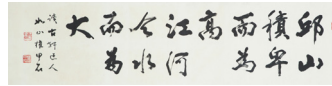 邱山
積卑
而為
高
江河
合水
而為
大